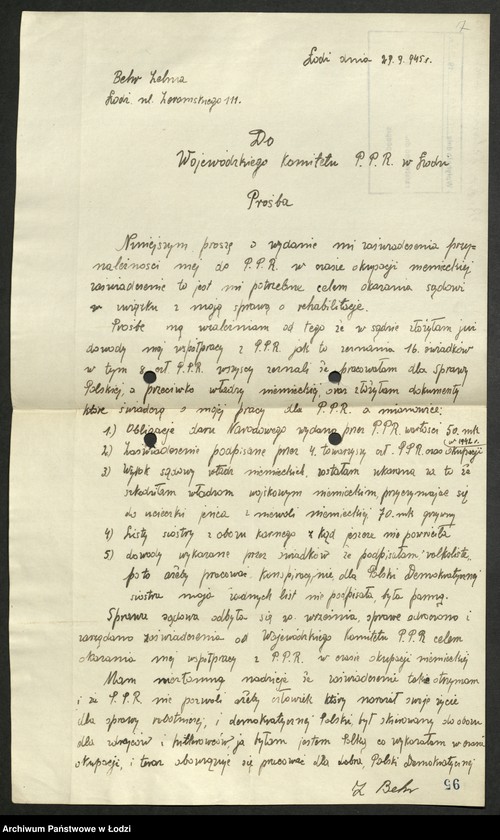 Łódź dnia 29.9.945r.
Behr Zelma
Łódź ul. Żeromskiego 111.
Do
Wojewódzkiego Komitetu P.P.R. w Łodzi
Prośba
Niniejszym proszę o wydanie mi zaświadczenia przy=
należności mej do P.P.R. w czasie okupacji niemieckiej
zaświadczenie to jest mi potrzebne celem okazania sądowi
w związku z moją sprawą o rehabilitację.
Prośbę mą uzależniam od tego że w sądzie złożyłam już
dowody mej współpracy z P.P.R. jak to zeznania 16. świadków
w tym 8 czł. P.P.R. wszyscy zeznali że pracowałam dla sprawy
Polskiej, a przeciwko władzy niemieckiej, oraz złożyłam dokumenty
które świadczą o mojej pracy dla P.P.R. a mianowicie:
1) Obligacje daru Narodowego wydaną przez P.P.R. wartości 50. mk
(w 1942 r.
2) Zaświadczenie podpisane przez 4. towarzyszy czł. P.P.R. oraz okupacji
3) Wyrok sądowy władz niemieckich, zostałam ukarana za to że
szkodziłam władzom wojskowym niemieckim, przyczyniając się
do ucieczki jeńca z niewoli niemieckiej 70. mk grzywny
4) Listy siostry z obozu karnego z kąd jeszcze nie powróciła
5) dowody wykazane przez świadków że podpisałam volkslistę,
po to ażeby pracować konspiracyjnie, dla Polski Demokratycznej
siostra moja żadnych list nie podpisała, była panną.
Sprawa sądowa odbyła się 20. września, sprawę odroczono i
zarządano zaświadczenia od Wojewódzkiego Komitetu P.P.R. celem
okazania mej współpracy z P.P.R. w czasie okupacji niemieckiej
Mam niezłomną nadzieję że zaświadczenie takie otrzymam
i że P.P.R. nie pozwoli ażeby człowiek który naraził swoje życie
dla sprawy robotniczej, i demokratycznej Polski był skierowany do obozu
dla zdrajców i hitlerowców ja byłam jestem Polką co wykazałam w czasie
okupacji, i teraz obowiązuje się pracować dla dobra Polski Demokratycznej
Z Behr
95
Archiwum Państwowe w Łodzi